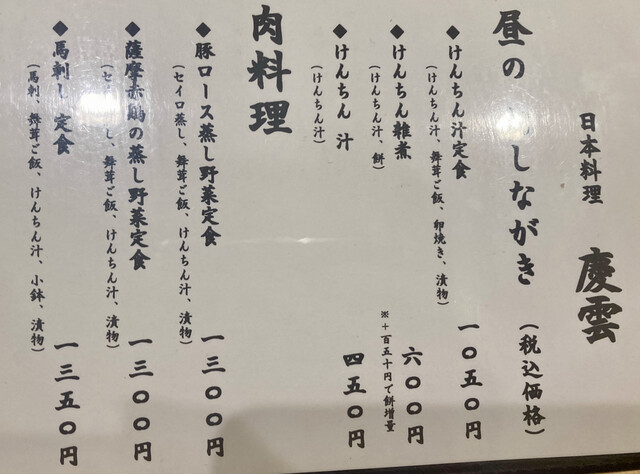 日本料理 慶雲
昼の しながき (税込価格)
◆けんちん汁定食 一〇五〇円
(けんちん汁、舞茸ご飯、卵焼き、漬物)
◆けんちん雑煮 六〇〇円
(けんちん汁、餅)
※+百五十円で餅増量
◆けんちん 汁 四五〇円
(けんちん汁)
肉料理
◆豚ロース蒸し野菜定食 一三〇〇円
(セイロ蒸し、舞茸ご飯、けんちん汁、漬物)
◆薩摩赤鶏の蒸し野菜定食 一三〇〇円
(セイ し、舞茸ご飯、けんちん汁、漬物)
◆馬刺し 定食 一三五〇円
(馬刺、舞茸ご飯、けんちん汁、小鉢、漬物)